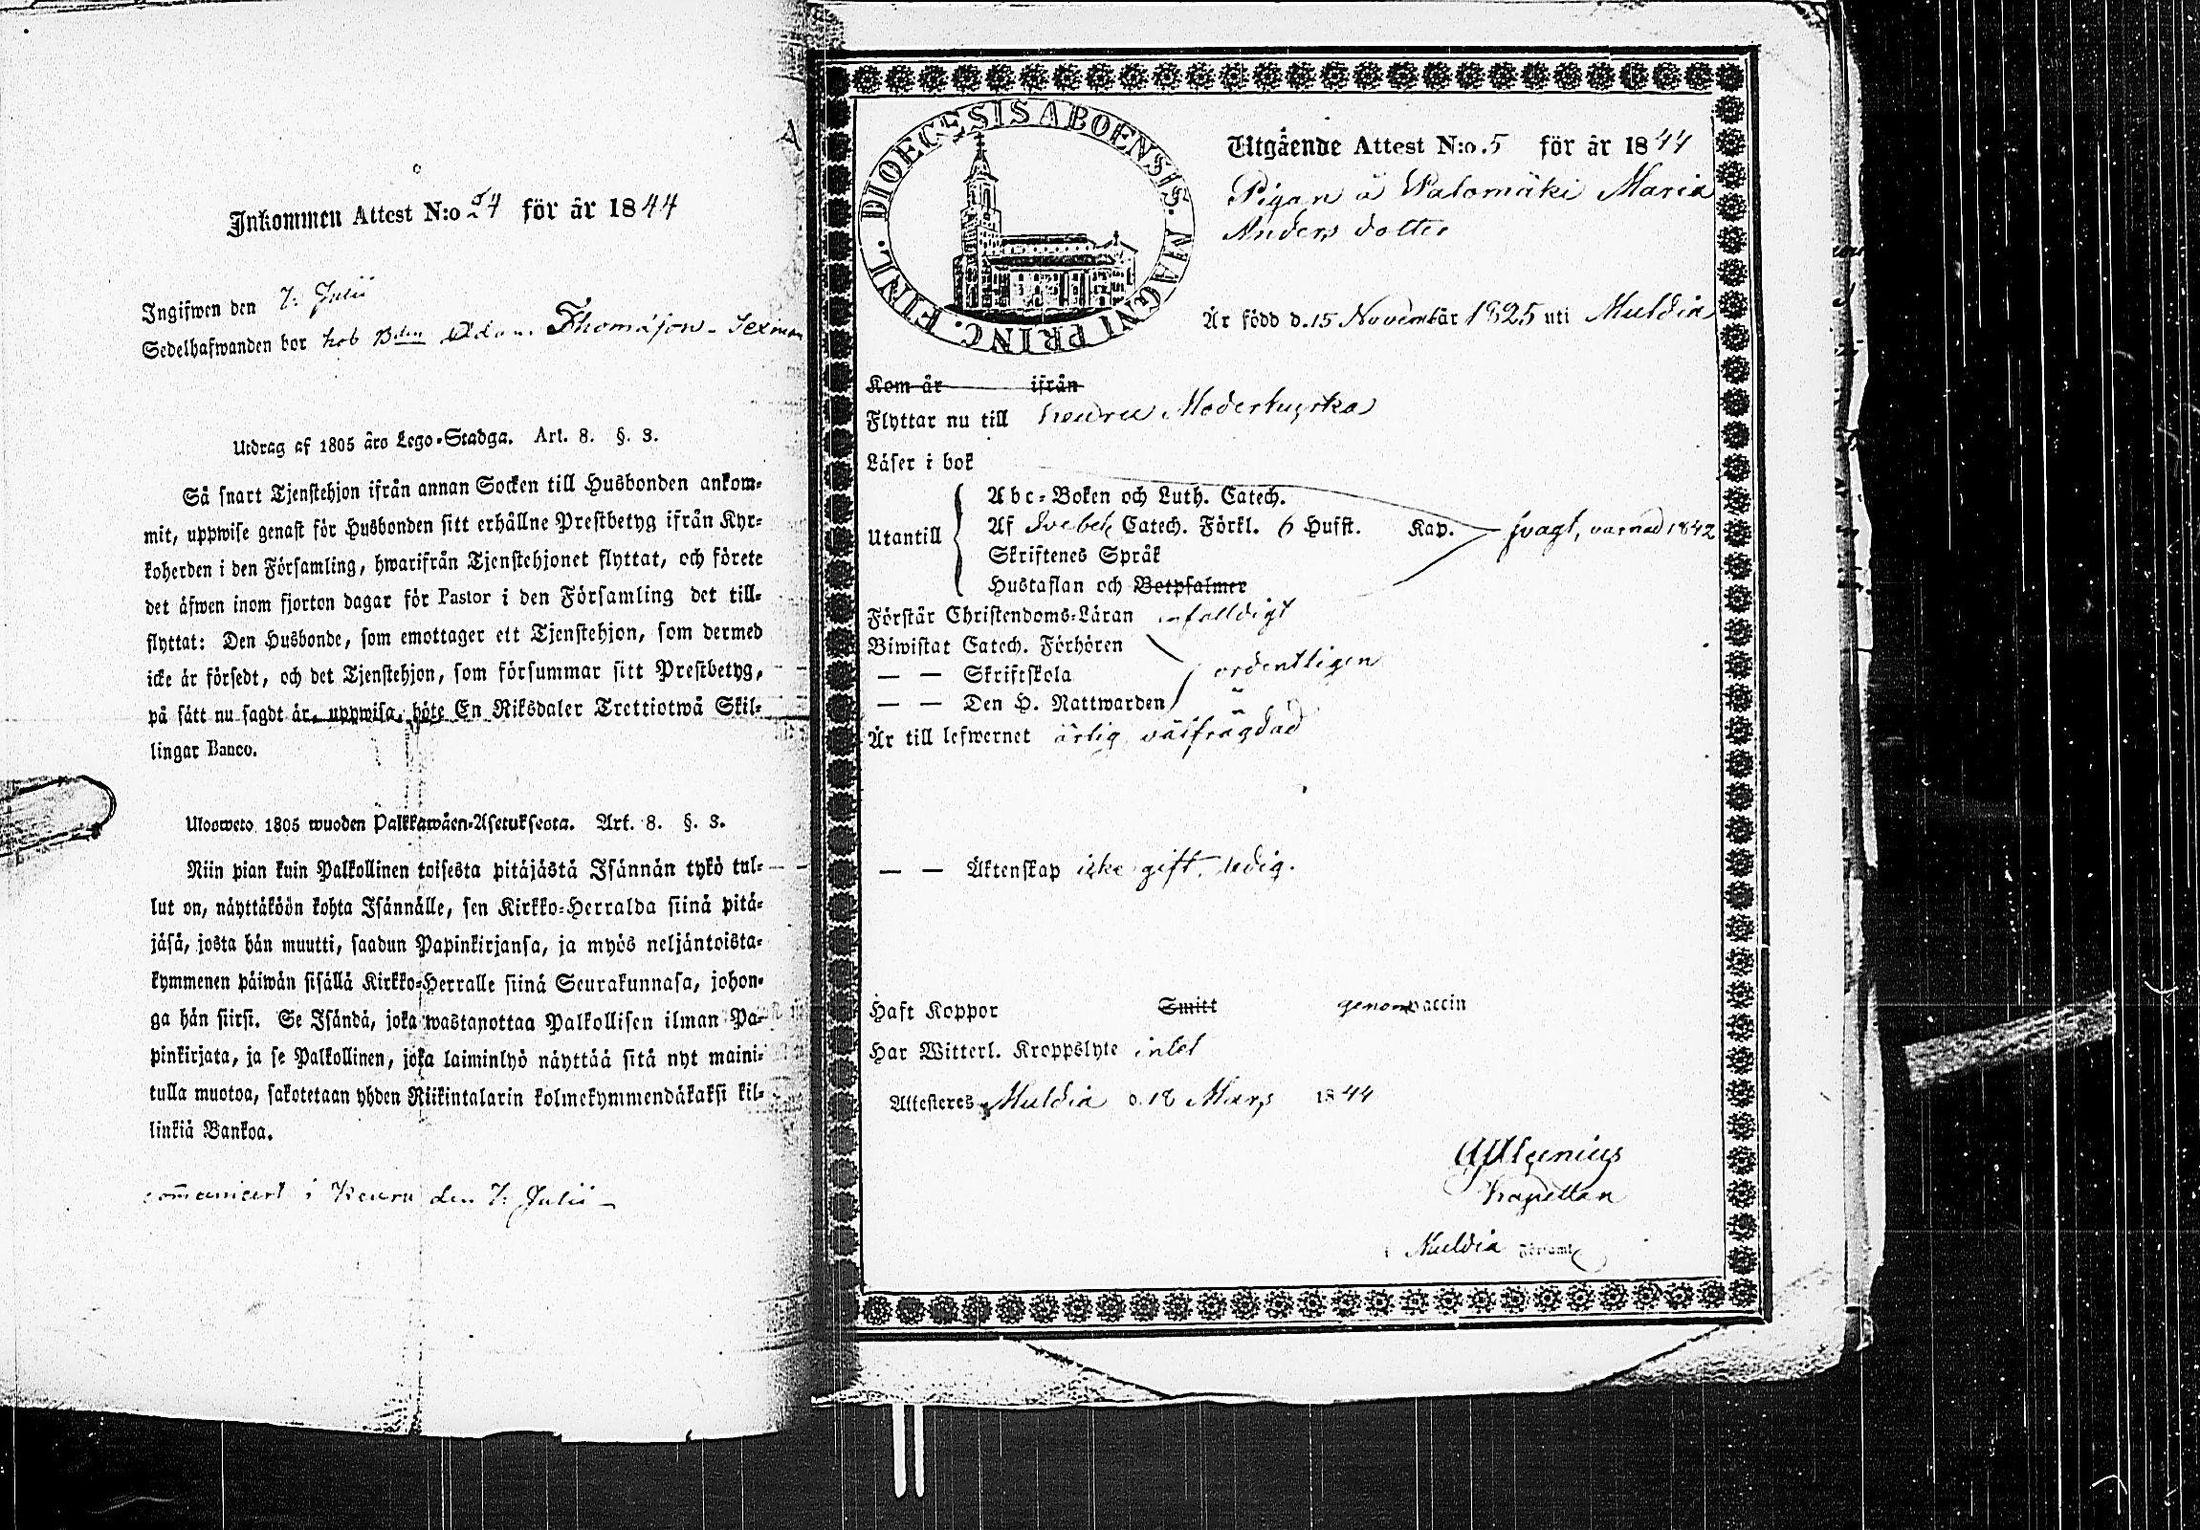 Inkommen Attest N:o 54 för år 1844
Ingifwen den 7: Julii
Sedelhafwanden bor hos Bden Adam Thomasson
Utdrag af 1805 åro Lego-Stadga. Art. 8. §. 3.
Så snart Tjenstehjon ifrån annan Socken till Husbonden ankom-
mit, uppwise genast för Husbonden sitt erhållne Prestbetyg ifrån Kyr-
koherden i den Församling, hwarifrån Tjenstehjonet flyttat, och förete
det äfwen inom fjorton dagar för Pastor i den Församling det till-
flyttat: Den Husbonde, som emottager ett Tjenstehjon, som dermed
icke är försedt, och det Tjenstehjon, som försummar sitt Prestbetyg,
på sätt nu sagdt är, uppwisa, böte En Riksdaler Trettiotwå Skil-
lingar Banco.
Ulosweto 1805 wuoden Palkkawäen-Asetuksesta. Art. 8. §. 3.
Niin pian kuin Palkollinen toisesta pitäjästä Isännän tykö tul-
lut on, näyttäköön kohta Isännälle, sen Kirkko-Herralda siinä pitä-
jäsä, josta hän muutti, saadun Papinkirjansa, ja myös neljäntoista-
kymmenen päiwän sisällä Kirkko-Herralle siinä Seurakunnasa, johon-
ga hän siirsi. Se Isändä, joka wastanottaa Palkollisen ilman Pa-
pinkirjata, ja se Palkollinen, joka laiminlyö näyttää sitä nyt maini-
tulla muotoa, sakotetaan yhden Riikintalarin kolmekymmendäkaksi kil-
linkiä Bankoa.
communicert i Keuru den 7: Julii
DIOECESIS ABOENSIS. MAGNI PRINC. FINL.
Utgående Attest N:o. 5 för år 1844
Pigan å Palomäki Maria
Anders dotter
Är född d. 15 Novembär 1825 uti Muldia
Kom år ifrån
Flyttar nu till Keuru Moderkyrka
Läser i bok
Abc-Boken och Luth. Catech.
Utantill Af Svebeli Catech. Förkl. 6 Hufst. Kap. svagt, varnad 1842
Skriftenes Språk
Hustaflan och Botpsalmer
Förstår Christendoms-Läran enfalldigt
Biwistat Catech. Förhören
— — Skriftskola ordentligen
— — Den H. Nattwarden
Är till lefwernet ärlig, välfrägdad
— — Äktenskap icke gift, ledig.
Haft Koppor Smitt genom vaccin
Har Witterl. Kroppslyte intet
Attesteres Muldia d. 18 Mars 1844
Kapellan
i Muldia Församl.